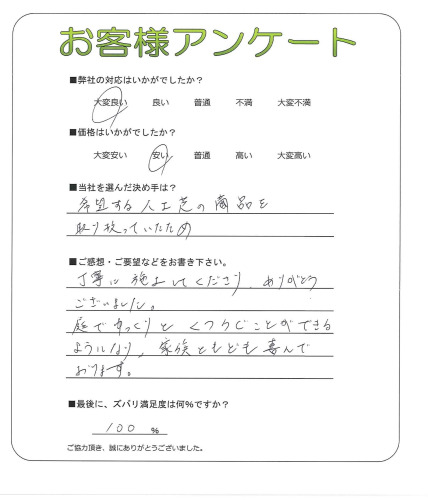 お客様アンケート
■弊社の対応はいかがでしたか？
大変良い 良い 普通 不満 大変不満
■価格はいかがでしたか？
大変安い 安い 普通 高い 大変高い
■当社を選んだ決め手は？
希望する人工芝の商品を
取り扱っていたため
■ご感想・ご要望などをお書き下さい。
丁寧に施工してくださり、ありがとう
ございました。
庭でゆっくりと くつろぐことができる
ようになり、家族ともども喜んで
おります。
■最後に、ズバリ満足度は何％ですか？
100 ％
ご協力頂き、誠にありがとうございました。